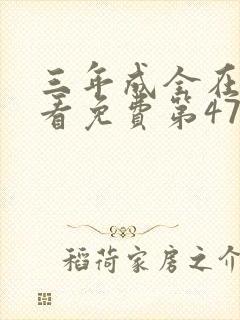 三年成全在
看免费第47
稻荷家房之介